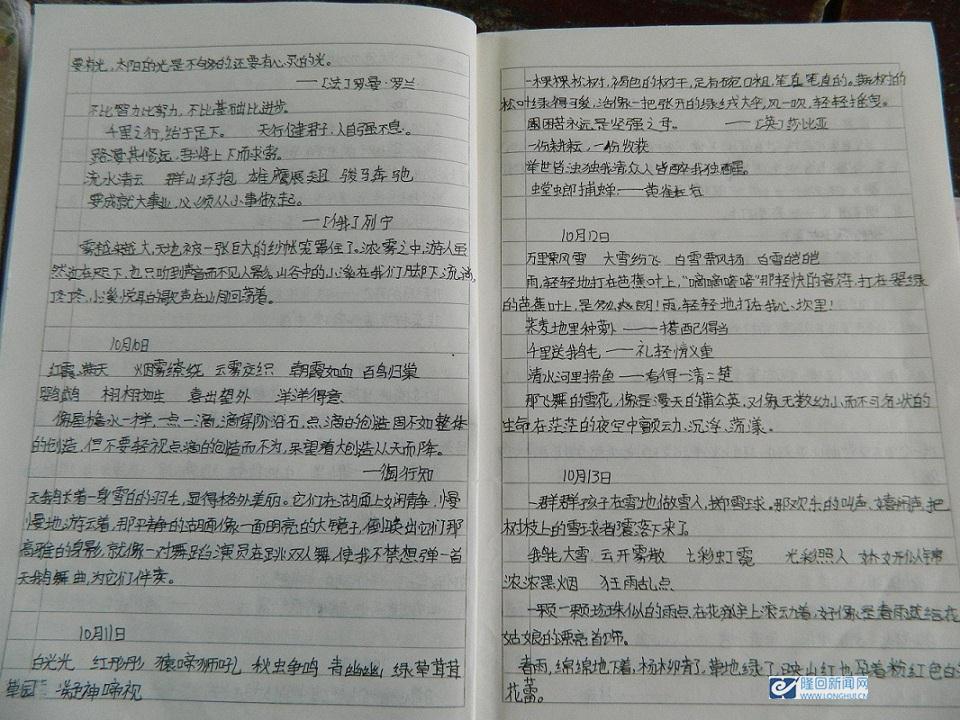 要有光,太阳的光是不够的,还要有心灵的光。
——[法]罗曼·罗兰
不比智力比努力,不比基础比进步。
千里之行,始于足下。 天行健君子,人自强不息。
路漫其修远,吾将上下而求索。
流水清云 群山环抱 雄鹰展翅 骏马奔驰
要成就大事业,必须从小事做起。
——[俄]列宁
天地被一张巨大的纱帐笼罩住了。浓雾之中,游人虽
然近在咫尺,也只听到声音而不见人影。山谷中的小溪在我们脚下流淌,
叮咚,小溪悦耳的歌声在山间回荡着。
10月10日
红霞满天 烟雾缭绕 云雾交织 朝霞如血 百鸟归巢
鹦鹉 栩栩如生 喜出望外 洋洋得意
像屋檐水一样,一点一滴,滴穿阶沿石,点滴的创造固不如整体
的创造,但不要轻视点滴的创造而不为,呆望着大创造从天而降。
——陶行知
天鹅长着一身雪白的羽毛,显得格外美丽。它们在湖面上文闲静,慢
慢地游云着,那平静的湖面像一面明亮的大镜子,倒映出它们那
高雅的身影,就像一对舞蹈演员在跳双人舞,使我不禁想弹一首
天鹅舞曲,为它们伴奏。
10月11日
白光光 红彤彤 猿啼狮吼 秋虫争鸣 青幽幽 绿草茸茸
果园 凝神啼视
一棵棵松树,褐色的树干,足有碗口粗,笔直笔直的。
松叶绿得可爱,活像一把张开的绿绒大伞,风一吹,轻轻摇曳。
困苦永远是坚强之母。 ——[英]莎比亚
一份耕耘,一份收获
举世皆浊独我清众人皆醉我独醒。
螳螂捕蝉——黄雀在后
10月12日
万里乘风雪 大雪纷飞 白雪飘扬 白雪皑皑
雨,轻轻地打在芭蕉叶上,“嘀嘀嗒嗒”那轻快的音符,打在翠绿
的芭蕉叶上,是 雨,轻轻地打在我心坎里!
荞麦地里种萝卜——搭配得当
千里送鹅毛——礼轻情义重
清水河里捞鱼——看得一清二楚
那飞舞的雪花,像是漫天的蒲公英,又像无数幼小而不可名状的
生命,在茫茫的夜空中颤动、沉浮、荡漾。
10月13日
一群群孩子在雪地做雪人,掷雪球。那欢乐的叫声、嬉闹声,把
树枝上的雪球都震落下来了。
鹅毛大雪 云开雾散 七彩虹霓 光彩照人
浓浓黑烟 狂雨乱点
一颗一颗珍珠似的雨点在花瓣上滚动着,好像是春雨送给花
姑娘的漂亮首饰。
春雨,绵绵地下着,杨柳青了,草地绿了,映山红也孕着粉红色
花蕾。
隆回新闻网
WWW.LONGHUI.CN